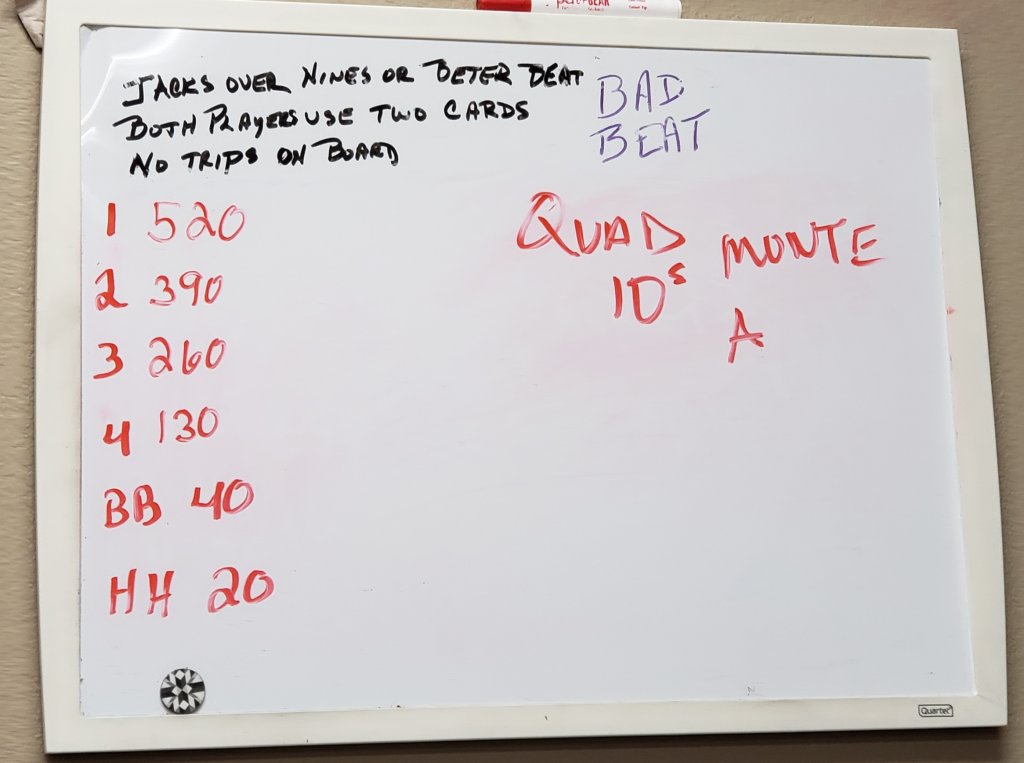 JACKS OVER NINES OR BETER BEAT
BOTH PLAYERS USE TWO CARDS
NO TRIPS ON BOARD
BAD
BEAT
1 520
2 390
3 260
4 130
BB 40
HH 20
QUAD
10s
MONTE
A
Quartet